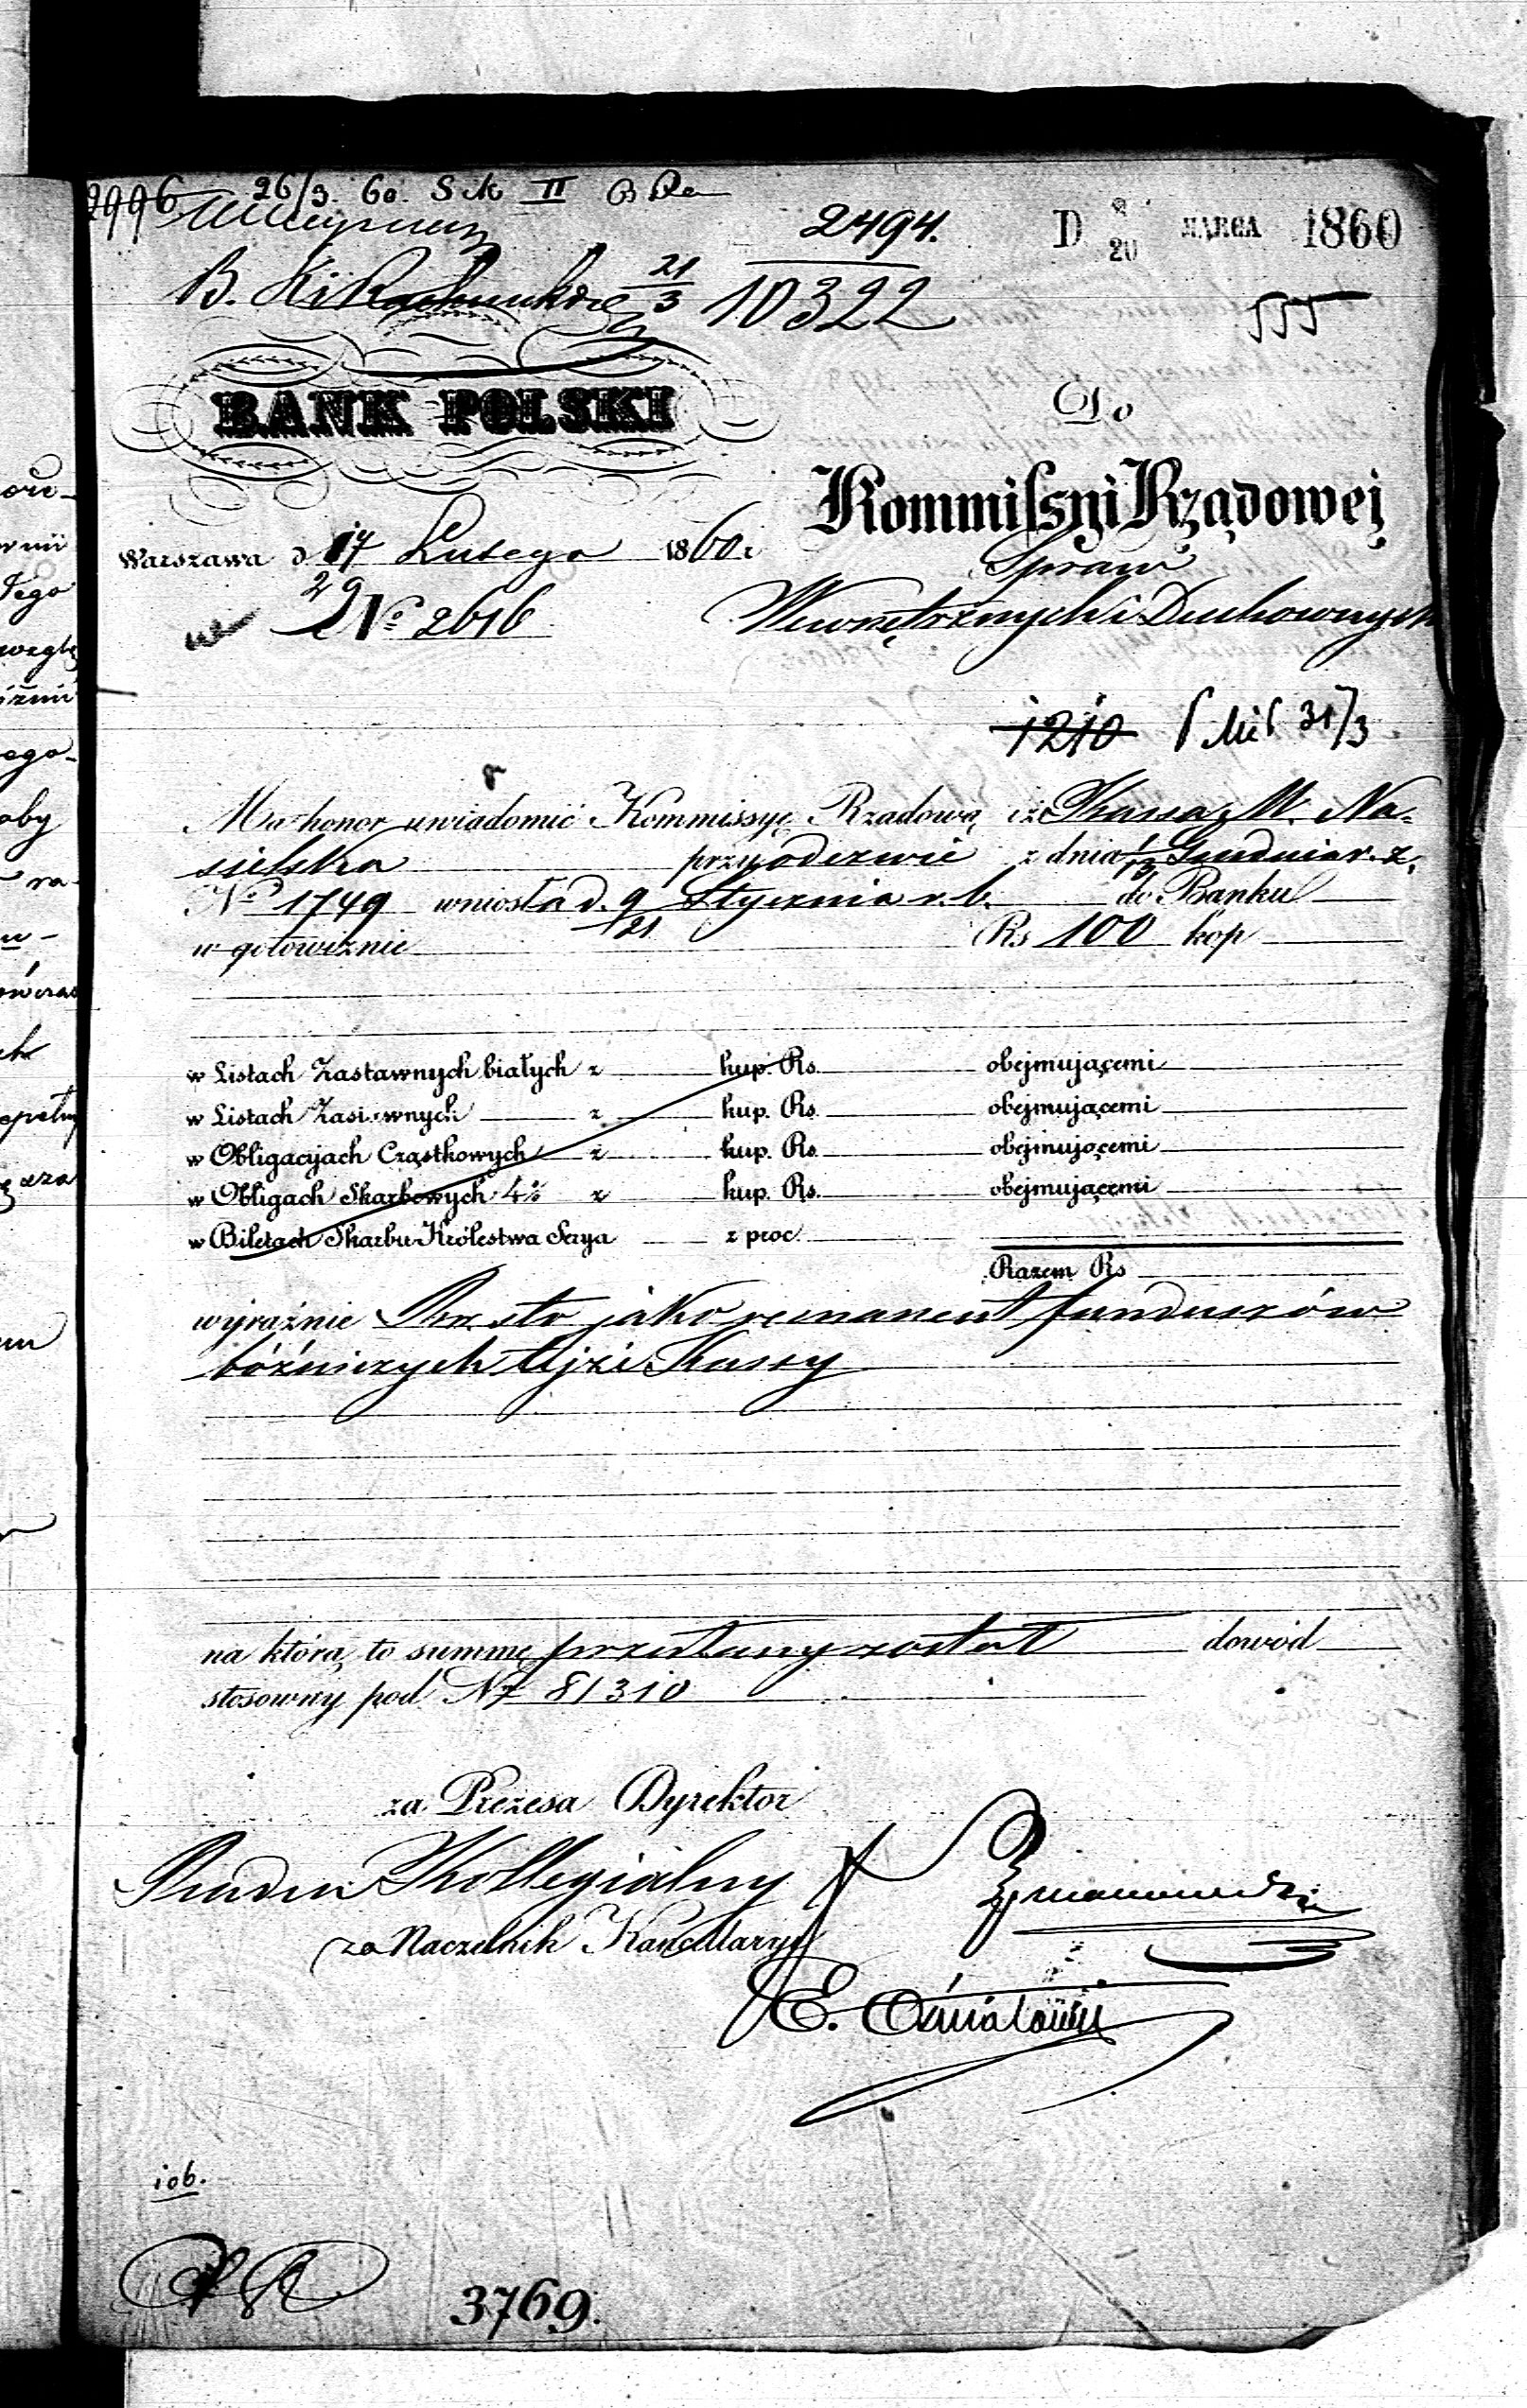 2996 26/3. 60. Sek II
2494.
D 8/20 MARCA 1860
B. Ki Rachunkow 21/3 10322
555
BANK POLSKI
Do
Kommissyi Rządowej
Warszawa d 17 Lutego 1860 r
Spraw
29
No 2616
Wewnętrznych i Duchownych
1210 31/3
Ma honor uwiadomić Kommissyę Rządową iż Kassa M. Na=
sielska przy odezwie z dnia 1/13 Grudnia r. z.
No 1749 wniosła d. 9 Stycznia r. b. do Banku
21
w gotowiznie Rs 100 kop
w Listach Zastawnych białych z kup. Rs. obejmującemi
w Listach Zastawnych z kup. Rs. obejmującemi
w Obligacyjach Cząstkowych z kup. Rs. obejmującemi
w Obligach Skarbowych 4% z kup. Rs. obejmującemi
w Biletach Skarbu Królestwa Serya z proc.
Razem Rs
wyraźnie Rsr. sto jako remanent funduszów
bóźniczych tejże Kassy
na którą to summę przesłany został dowód
stosowny pod No 81310
za Prezesa Dyrektor
Radca Kollegialny
za Naczelnik Kancellaryi
E.
iob.
3769.